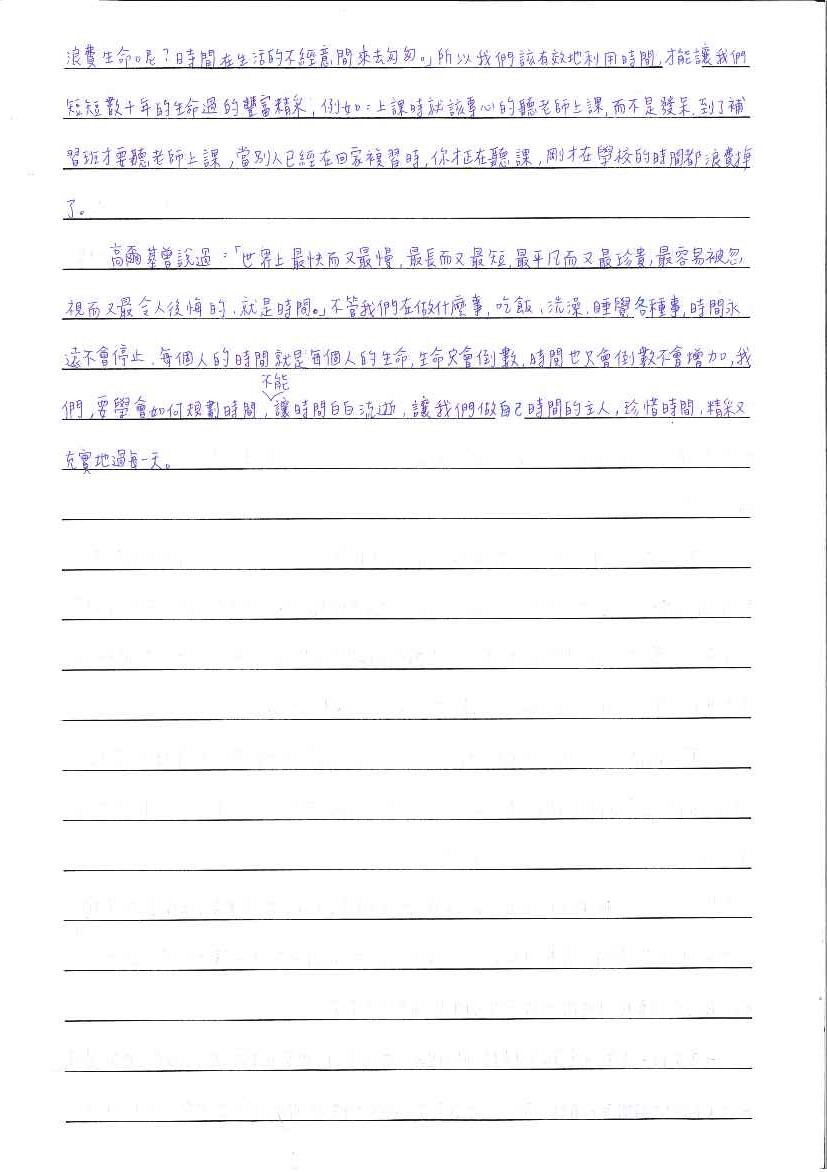 浪費生命呢？時間在生活的不經意間來去匆匆。」所以我們該有效地利用時間，才能讓我們
短短數十年的生命過的豐富精采，例如：上課時就該專心的聽老師上課，而不是發呆，到了補
習班才要聽老師上課，當別人已經在回家複習時，你才正在聽課，剛才在學校的時間都浪費掉
了。
高爾基曾說過：「世界上最快而又最慢，最長而又最短，最平凡而又最珍貴，最容易被忽
視而又最令人後悔的，就是時間。」不管我們在做什麼事，吃飯、洗澡、睡覺各種事，時間永
遠不會停止，每個人的時間就是每個人的生命，生命只會倒數，時間也只會倒數不會增加，我
們，要學會如何規劃時間，不能讓時間白白流逝，讓我們做自己時間的主人，珍惜時間，精采又
充實地過每一天。